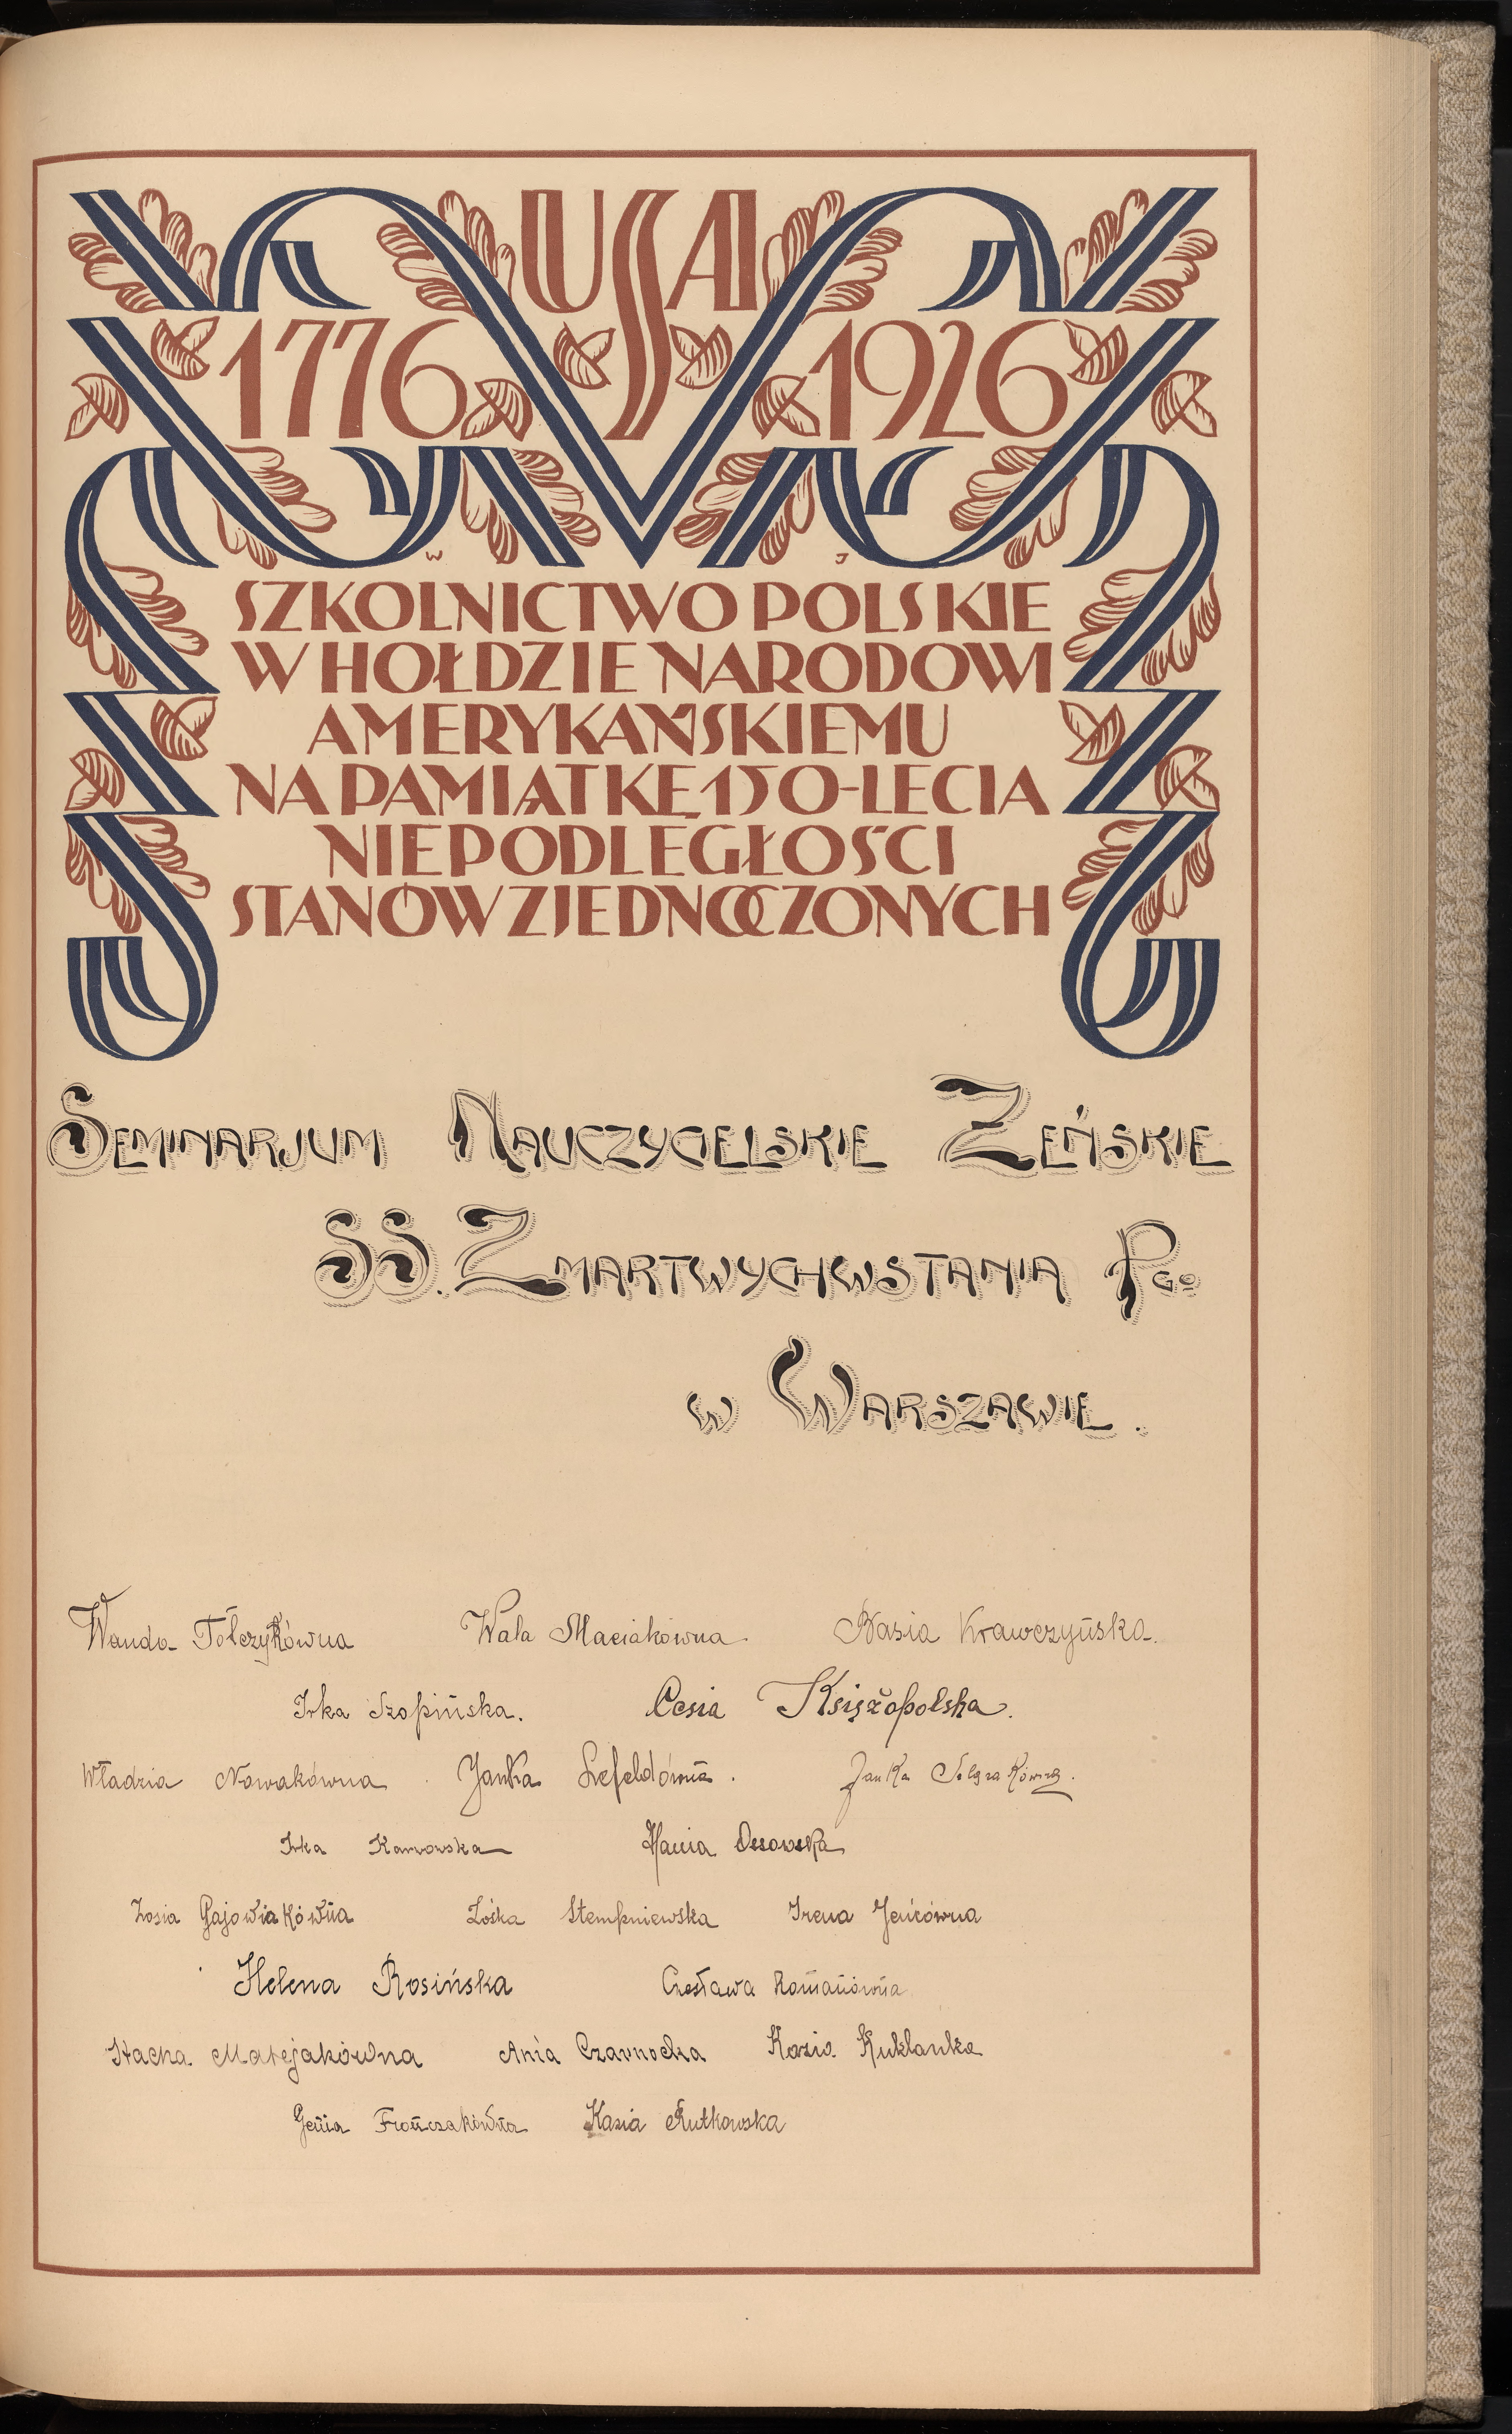 USA
1776 1926
W J
SZKOLNICTWO POLSKIE
W HOŁDZIE NARODOWI
AMERYKAŃSKIEMU
NA PAMIĄTKĘ 150-LECIA
NIEPODLEGŁOŚCI
STANÓW ZJEDNOCZONYCH
SEMINARJUM NAUCZYCIELSKIE ŻEŃSKIE
SS. ZMARTWYCHWSTANIA PGO
W WARSZAWIE.
Wanda Tołczykówna Wala Maciakówna Basia Krawczyńska.
Irka Szopińska. Cesia Księżopolska.
Władzia Nowakówna Janka Lefeldówna. Janka
Irka Karwowska Hania Ossowska
Zosia Gajowiakówna Zośka Stempniewska Irena Jeńcówna
Helena Rosińska Czesława Romanówna
Stacha Matejakówna Ania Czarnocka Kazia Kuklanka
Genia Frończakówna Kazia Rutkowska